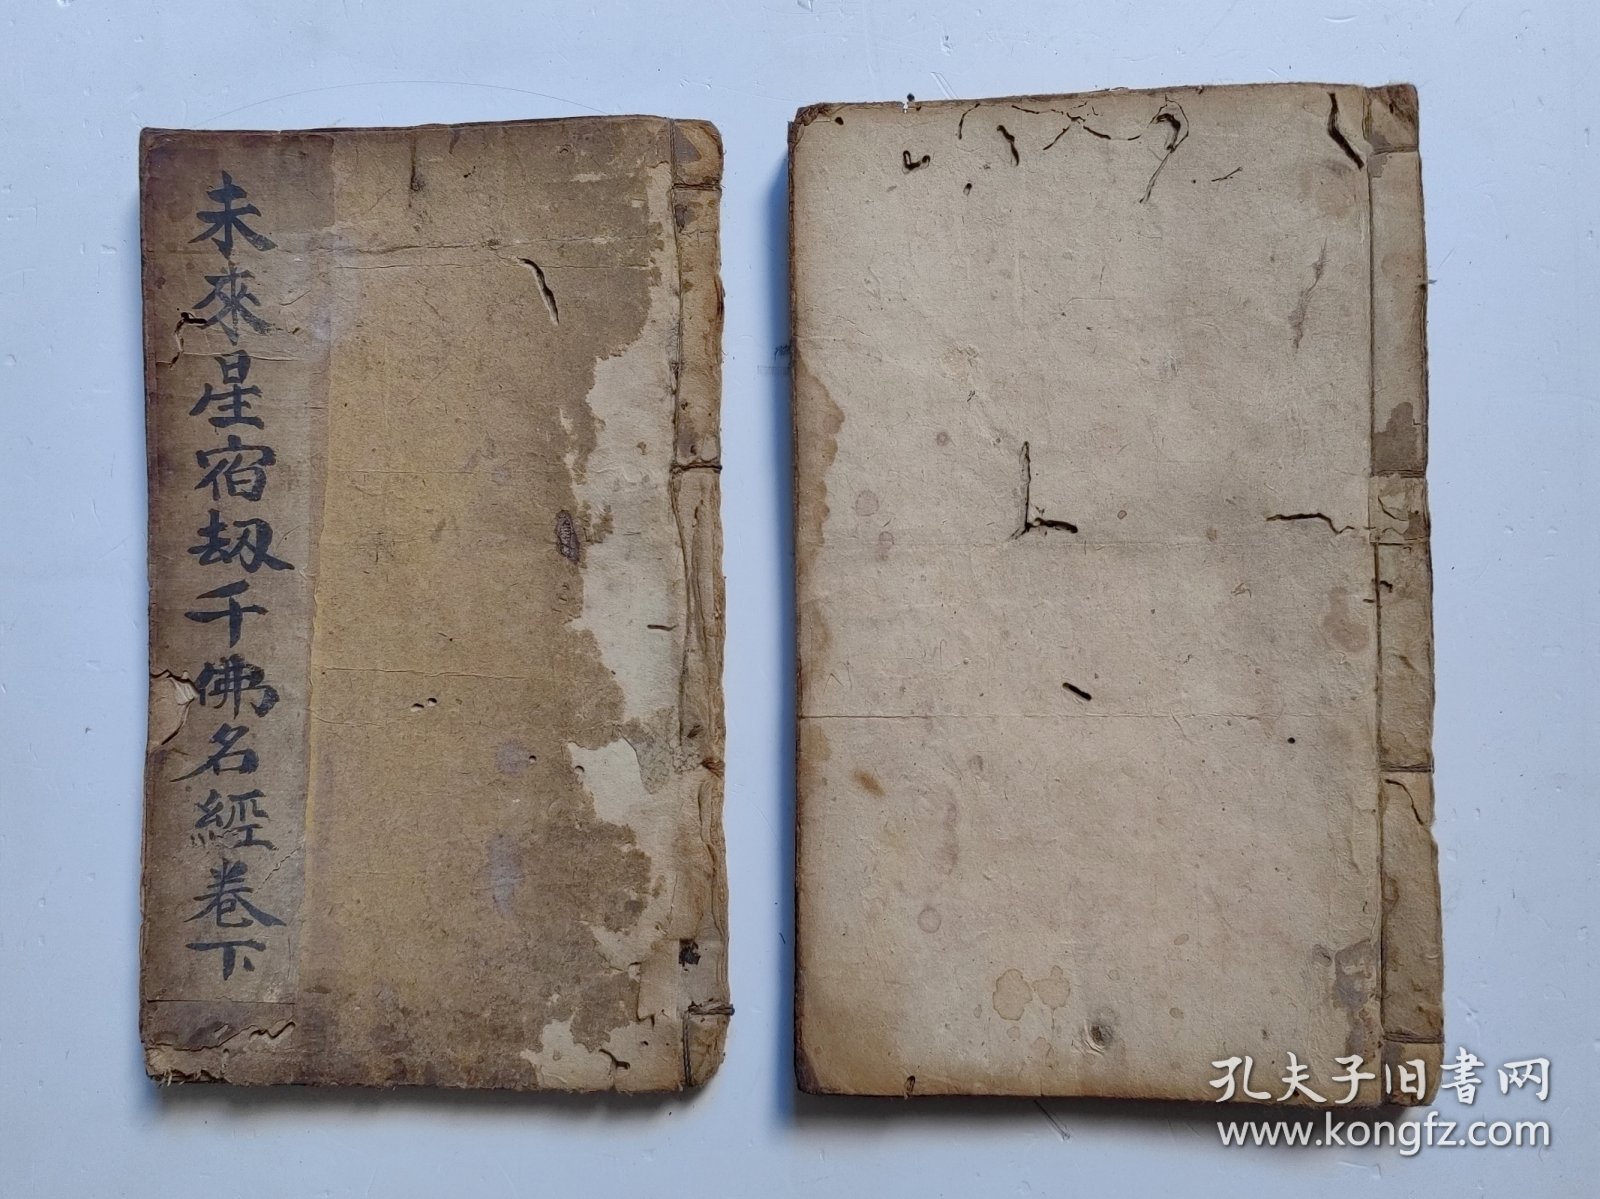 未來星宿刼千佛名經卷下
孔夫子旧書网
www.kongfz.com